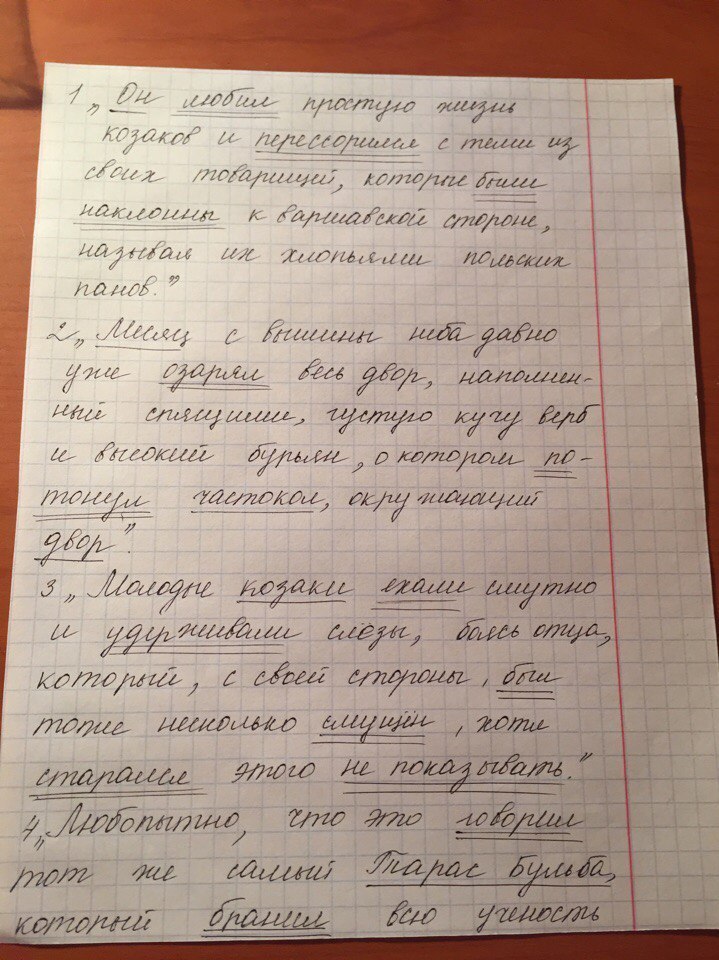 1 „Он любил простую жизнь
козаков и перессорился с теми из
своих товарищей, которые были
наклонны к варшавской стороне,
называя их хлопьями польских
панов."
2 „Месяц с вышины неба давно
уже озарял весь двор, наполнен-
ный спящими, густую кучу верб
и высокий бурьян, о котором по-
тонул частокол, окружающий
двор".
3 „Молодые козаки ехали смутно
и удерживали слёзы, боясь отца,
который, с своей стороны, был
тоже несколько смущён, хотя
старался этого не показывать."
4 „Любопытно, что это говорил
тот же самый Тарас Бульба,
который бранил всю ученость